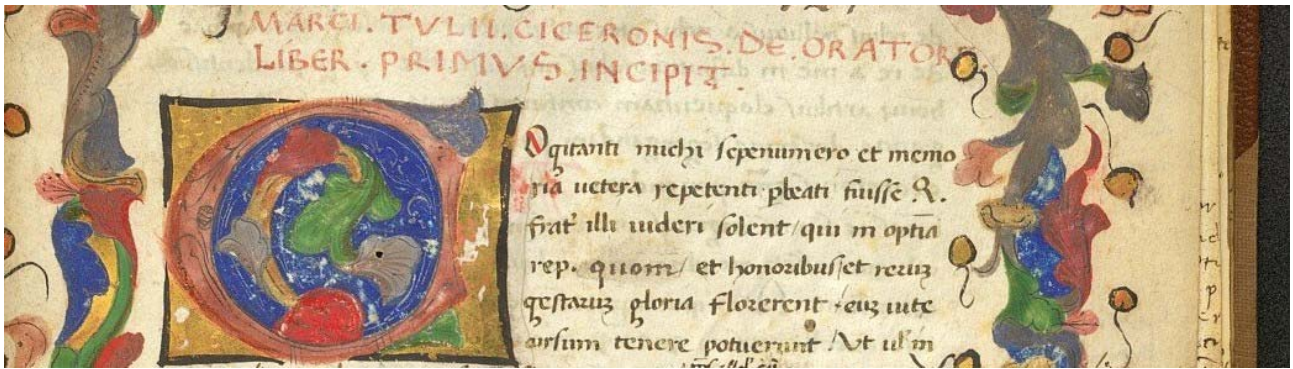 MARCI . TVLII . CICERONIS . DE . ORATORE
LIBER . PRIMVS . INCIPIT .
Ogitanti michi sepenumero et memo
ria uetera repetenti pbeati fuisse Q.
frat' illi uideri solent / qui in optīa
rep. quom / et honoribus / et rerum
gestarum gloria florerent / eum uite
cursum tenere potuerunt / Vt uł in